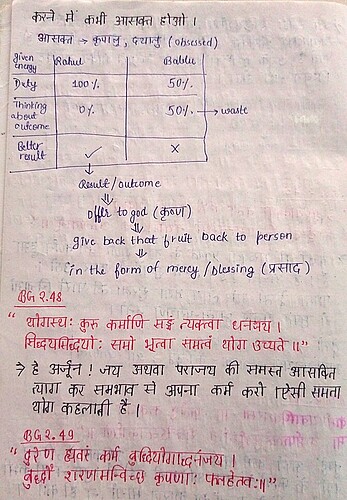 करने में कभी आसक्त होओ ।
आसक्त → कृपालु, दयालु (obsessed)
given energy | Rahul | Bablu
Duty | 100% | 50%
Thinking about outcome | 0% | 50% → waste
Better result | ✓ | ×
Result/outcome
⇓
offer to god (कृष्ण)
⇓
give back that fruit back to person
⇓
in the form of mercy/blessing (प्रसाद)
BG 2.48
" योगस्थः कुरु कर्माणि सङ्गं त्यक्त्वा धनञ्जय ।
सिद्धयसिद्धयोः समो भूत्वा समत्वं योग उच्यते ॥"
→ हे अर्जुन ! जय अथवा पराजय की समस्त आसक्ति
त्याग कर समभाव से अपना कर्म करो । ऐसी समता
योग कहलाती है ।
BG 2.49
" दूरेण ह्यवरं कर्म बुद्धियोगाद्धनंजय ।
बुद्धौ शरणमन्विच्छ कृपणाः फलहेतवः ॥"